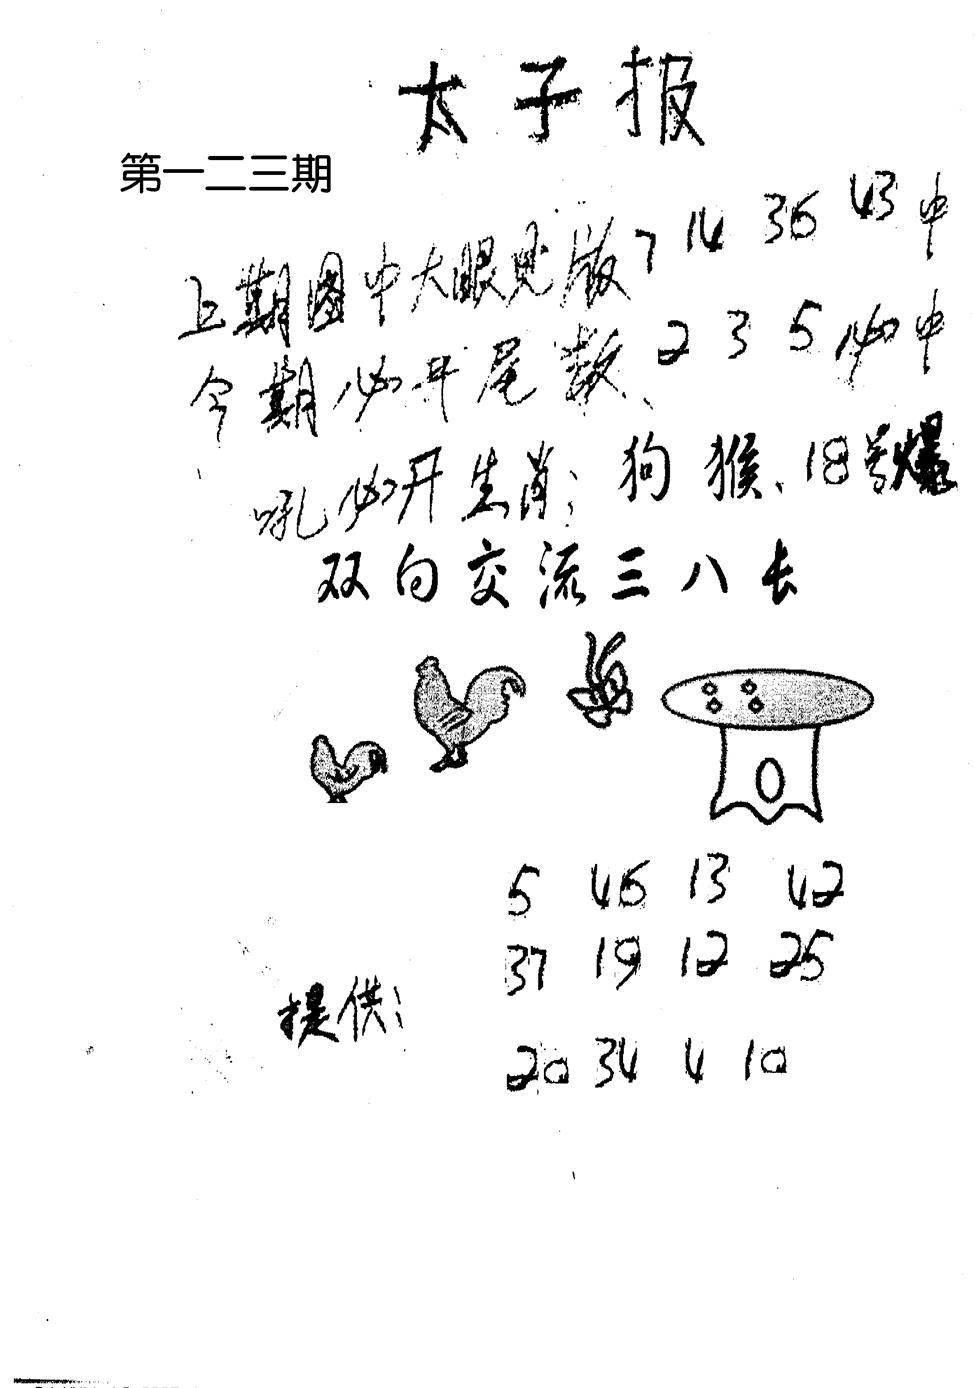 太子报
第一二三期
上期图中大眼见版 7 14 36 43 中
今期必开尾数、2 3 5 必中
吼必开生肖：狗 猴、18号爆
双向交流三八长
5 46 13 42
37 19 12 25
提供：
20 34 4 10